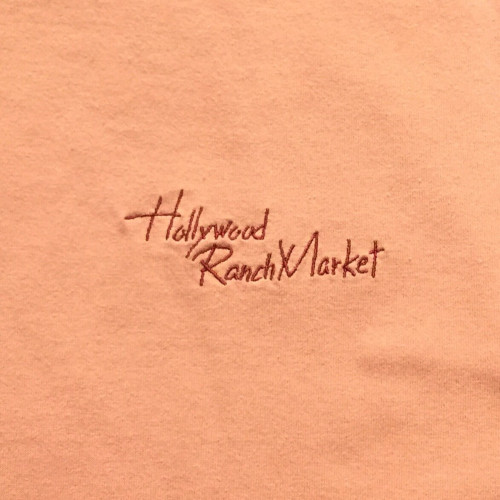 Hollywood
Ranch Market